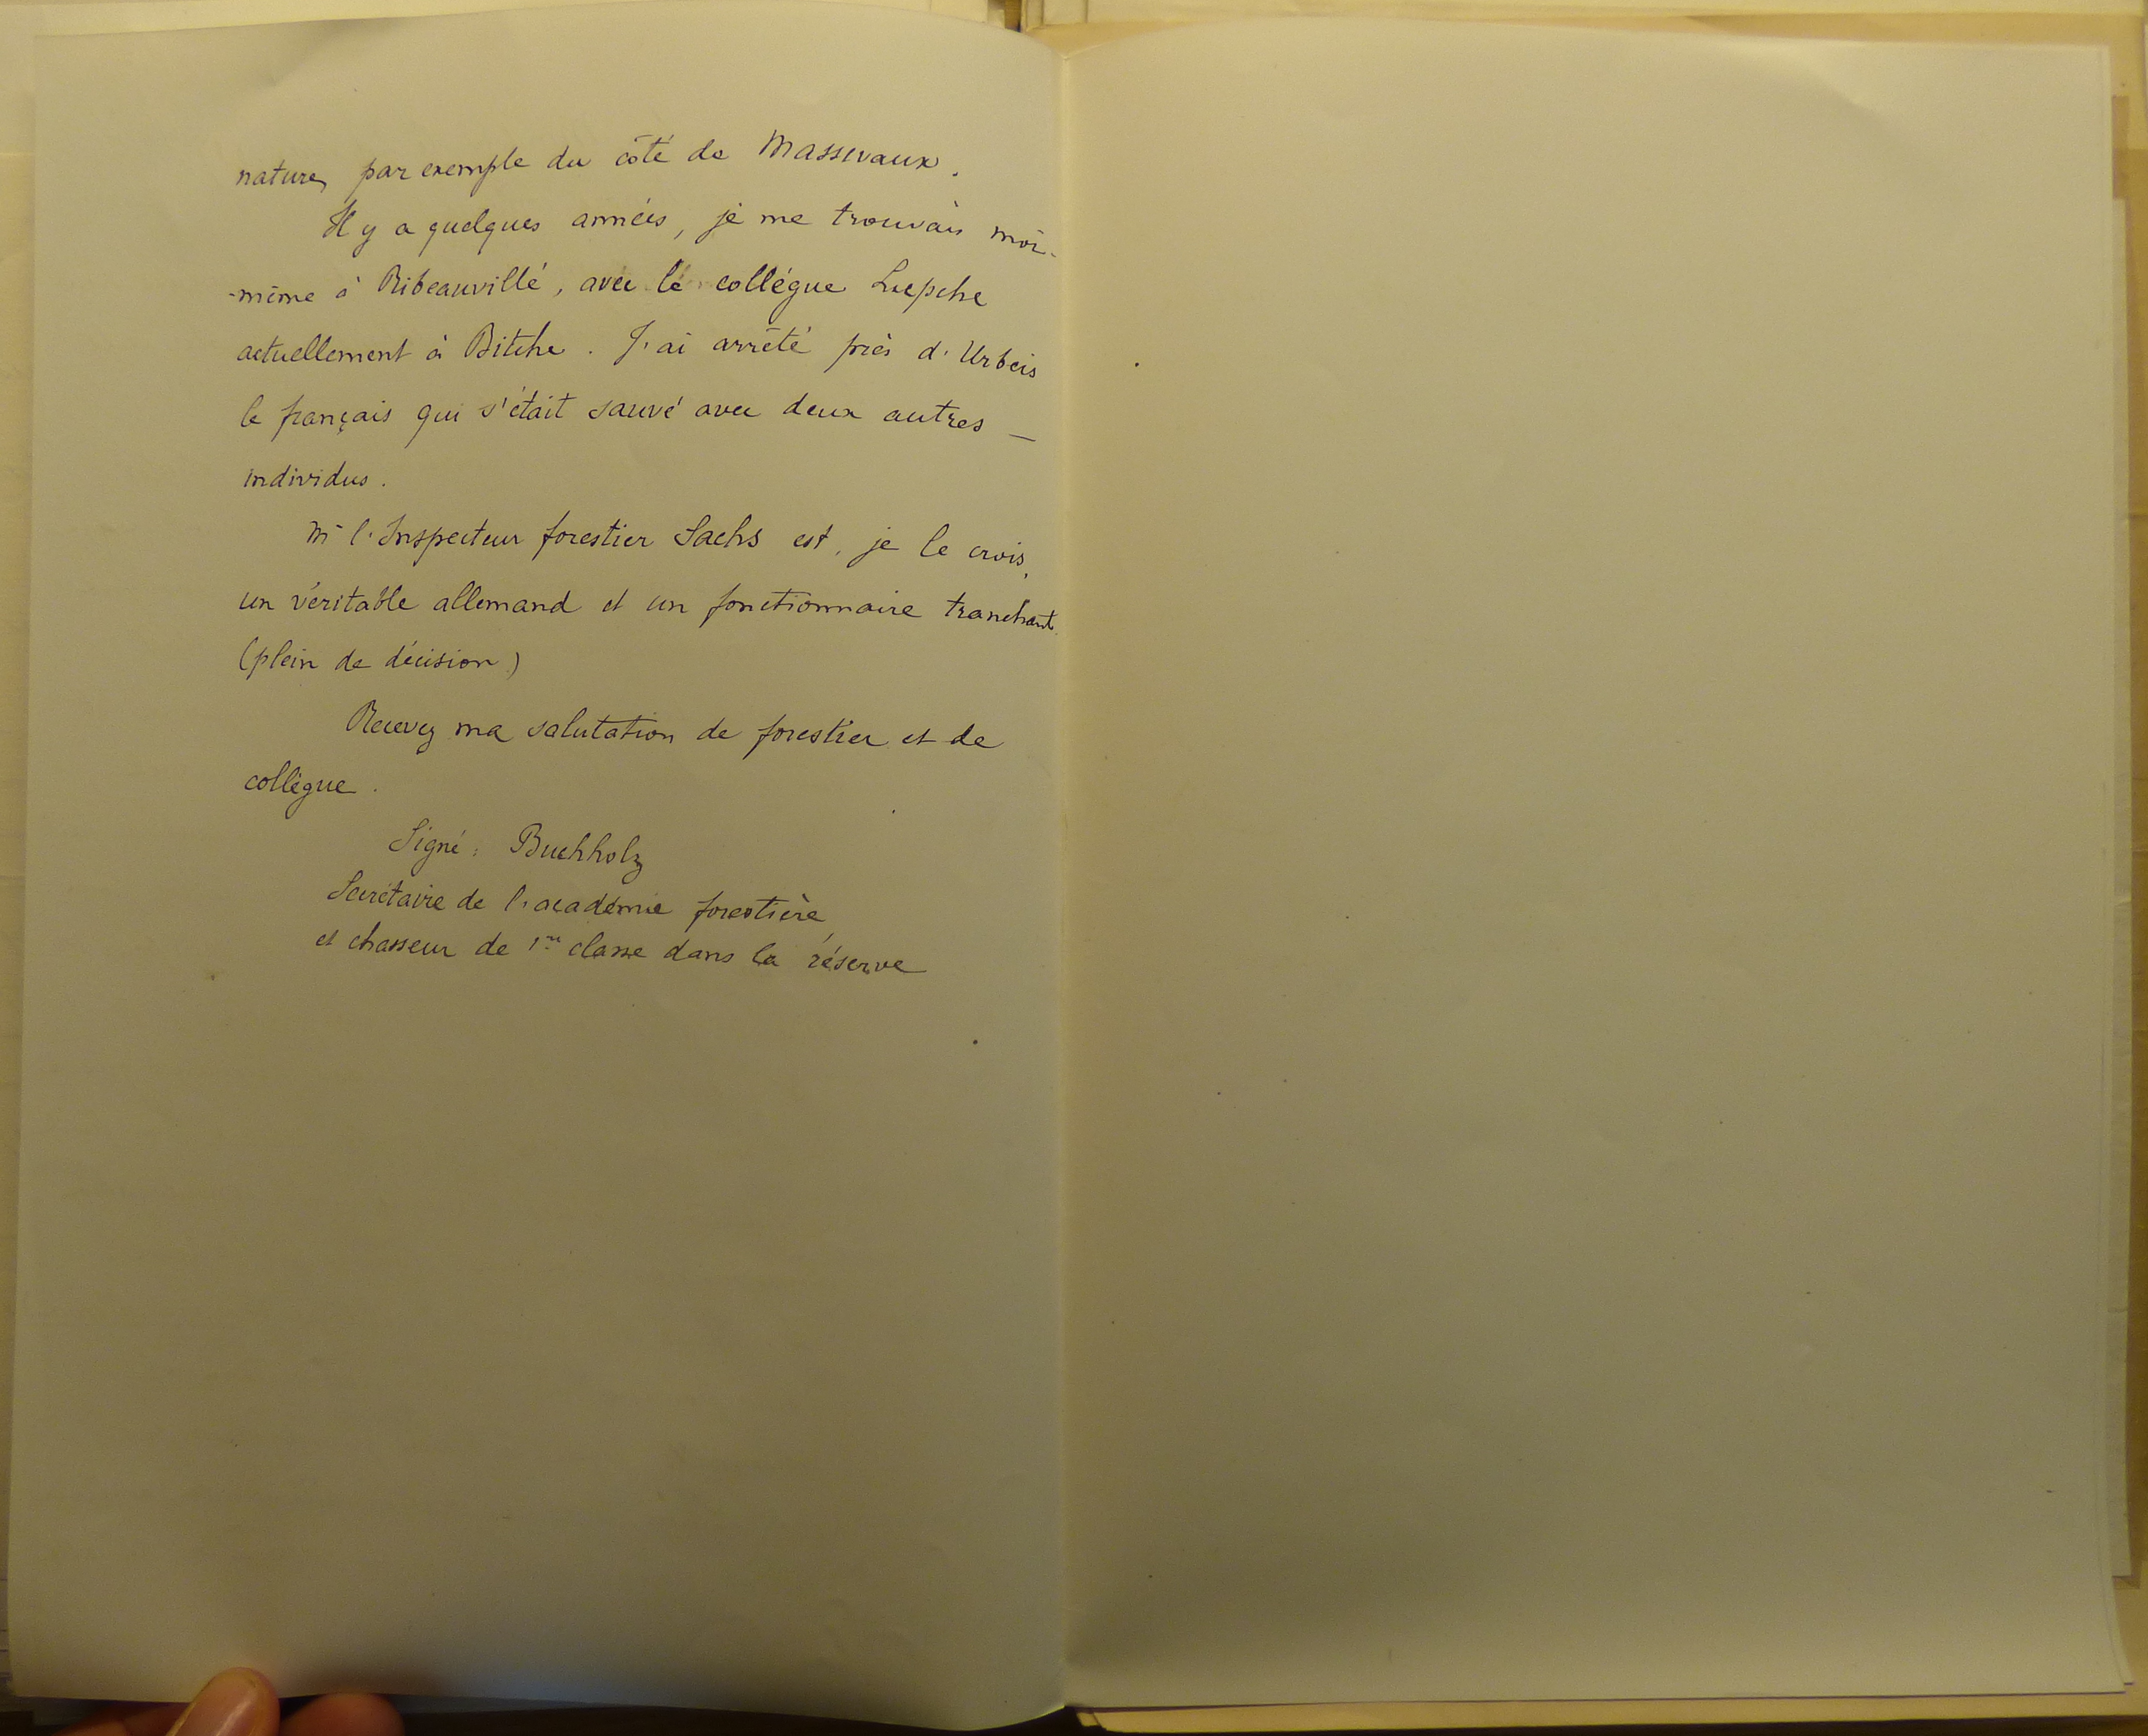 nature, par exemple du côté de Massevaux.
Il y a quelques années, je me trouvais moi-
-même à Ribeauvillé, avec le collégue Luepche
actuellement à Bitche. J'ai arrêté près d'Urbeis
le français qui s'était sauvé avec deux autres —
individus.
Mr l'Inspecteur forestier Sachs est, je le crois,
un véritable allemand et un fonctionnaire tranchant
(plein de décision)
Recevez ma salutation de forestier et de
collègue.
Signé : Buchholz
Secrétaire de l'académie forestière,
et chasseur de 1re classe dans la réserve